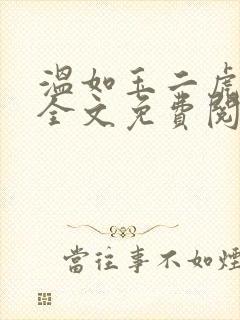 溫如玉二虎
全文免費閱
當往事不如煙